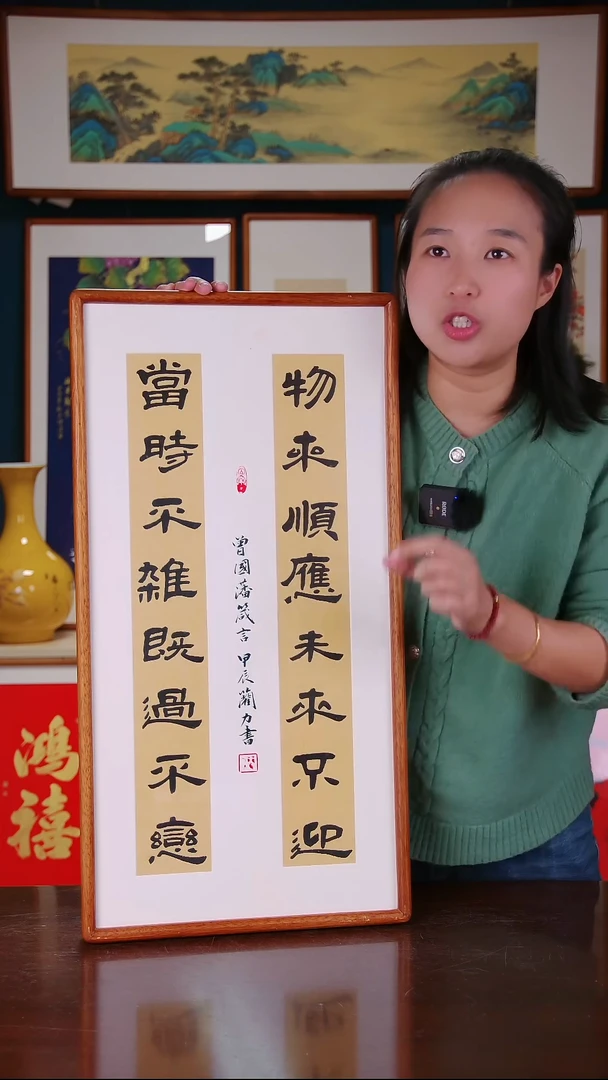 物來順應未來不迎
當時不雜既過不戀
曾國藩箴言 甲辰蘭力書
鴻禧
RODE